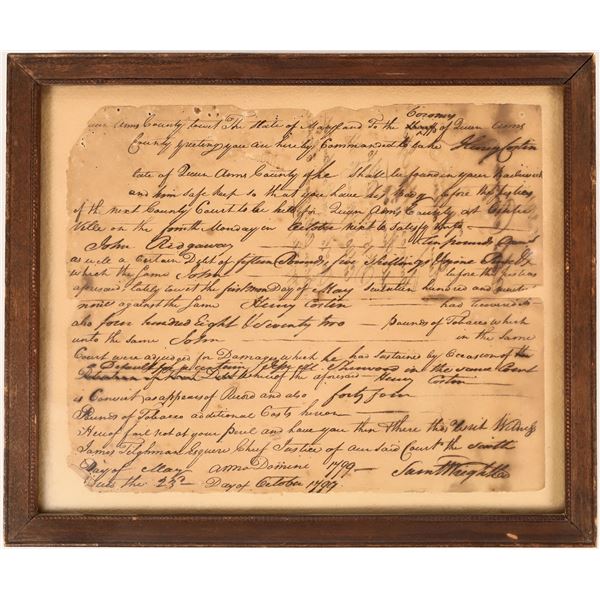 Coroner
Ann's County to wit The State of Maryland To the of Queen Anns
County Greeting you are hereby Commanded to take Henry Costin
late of Queen Anns County if he Shall be found in your Bailiwick
and him Safe keep so that you have his Body before the Justices
of the next County Court to be held for Queen Anns County at Centre
Ville on the fourth Monday in October next to Satisfy unto
John Ridgaway ten pounds Curr
as well a Certain Debt of fifteen Pounds five Shillings
which the Same John before the Justices
aforesaid lately to wit the first Monday of May Seventeen hundred and ninety
nine against the Same Henry Costin had recovered as
also four hundred Eight & Seventy two Pounds of Tobacco which
unto the Same John in the Same
Court were adjudged for Damages which he had Sustained by Occasion of the
in the same Court
of the aforesaid Henry Costin
is Convict as appears of Record and also forty four
Pounds of Tobacco additional Costs hereon
Hereof fail not at your peril and have you then & there this Writ Witness
James Tilghman Esquire Chief Justice of our said Court the Sixth
Day of May Anno Domini 1799 Saml Wright Clk
the 23d Day of October 1799